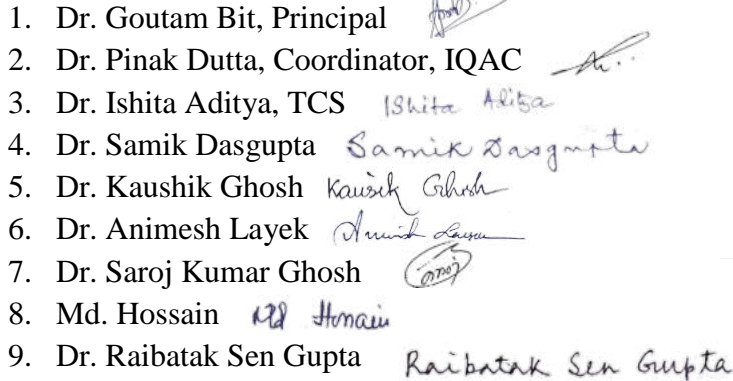 1. Dr. Goutam Bit, Principal
2. Dr. Pinak Dutta, Coordinator, IQAC
3. Dr. Ishita Aditya, TCS Ishita Aditya
4. Dr. Samik Dasgupta Samik Dasgupta
5. Dr. Kaushik Ghosh Kausik Ghosh
6. Dr. Animesh Layek
7. Dr. Saroj Kumar Ghosh
8. Md. Hossain Md Hossain
9. Dr. Raibatak Sen Gupta Raibatak Sen Gupta